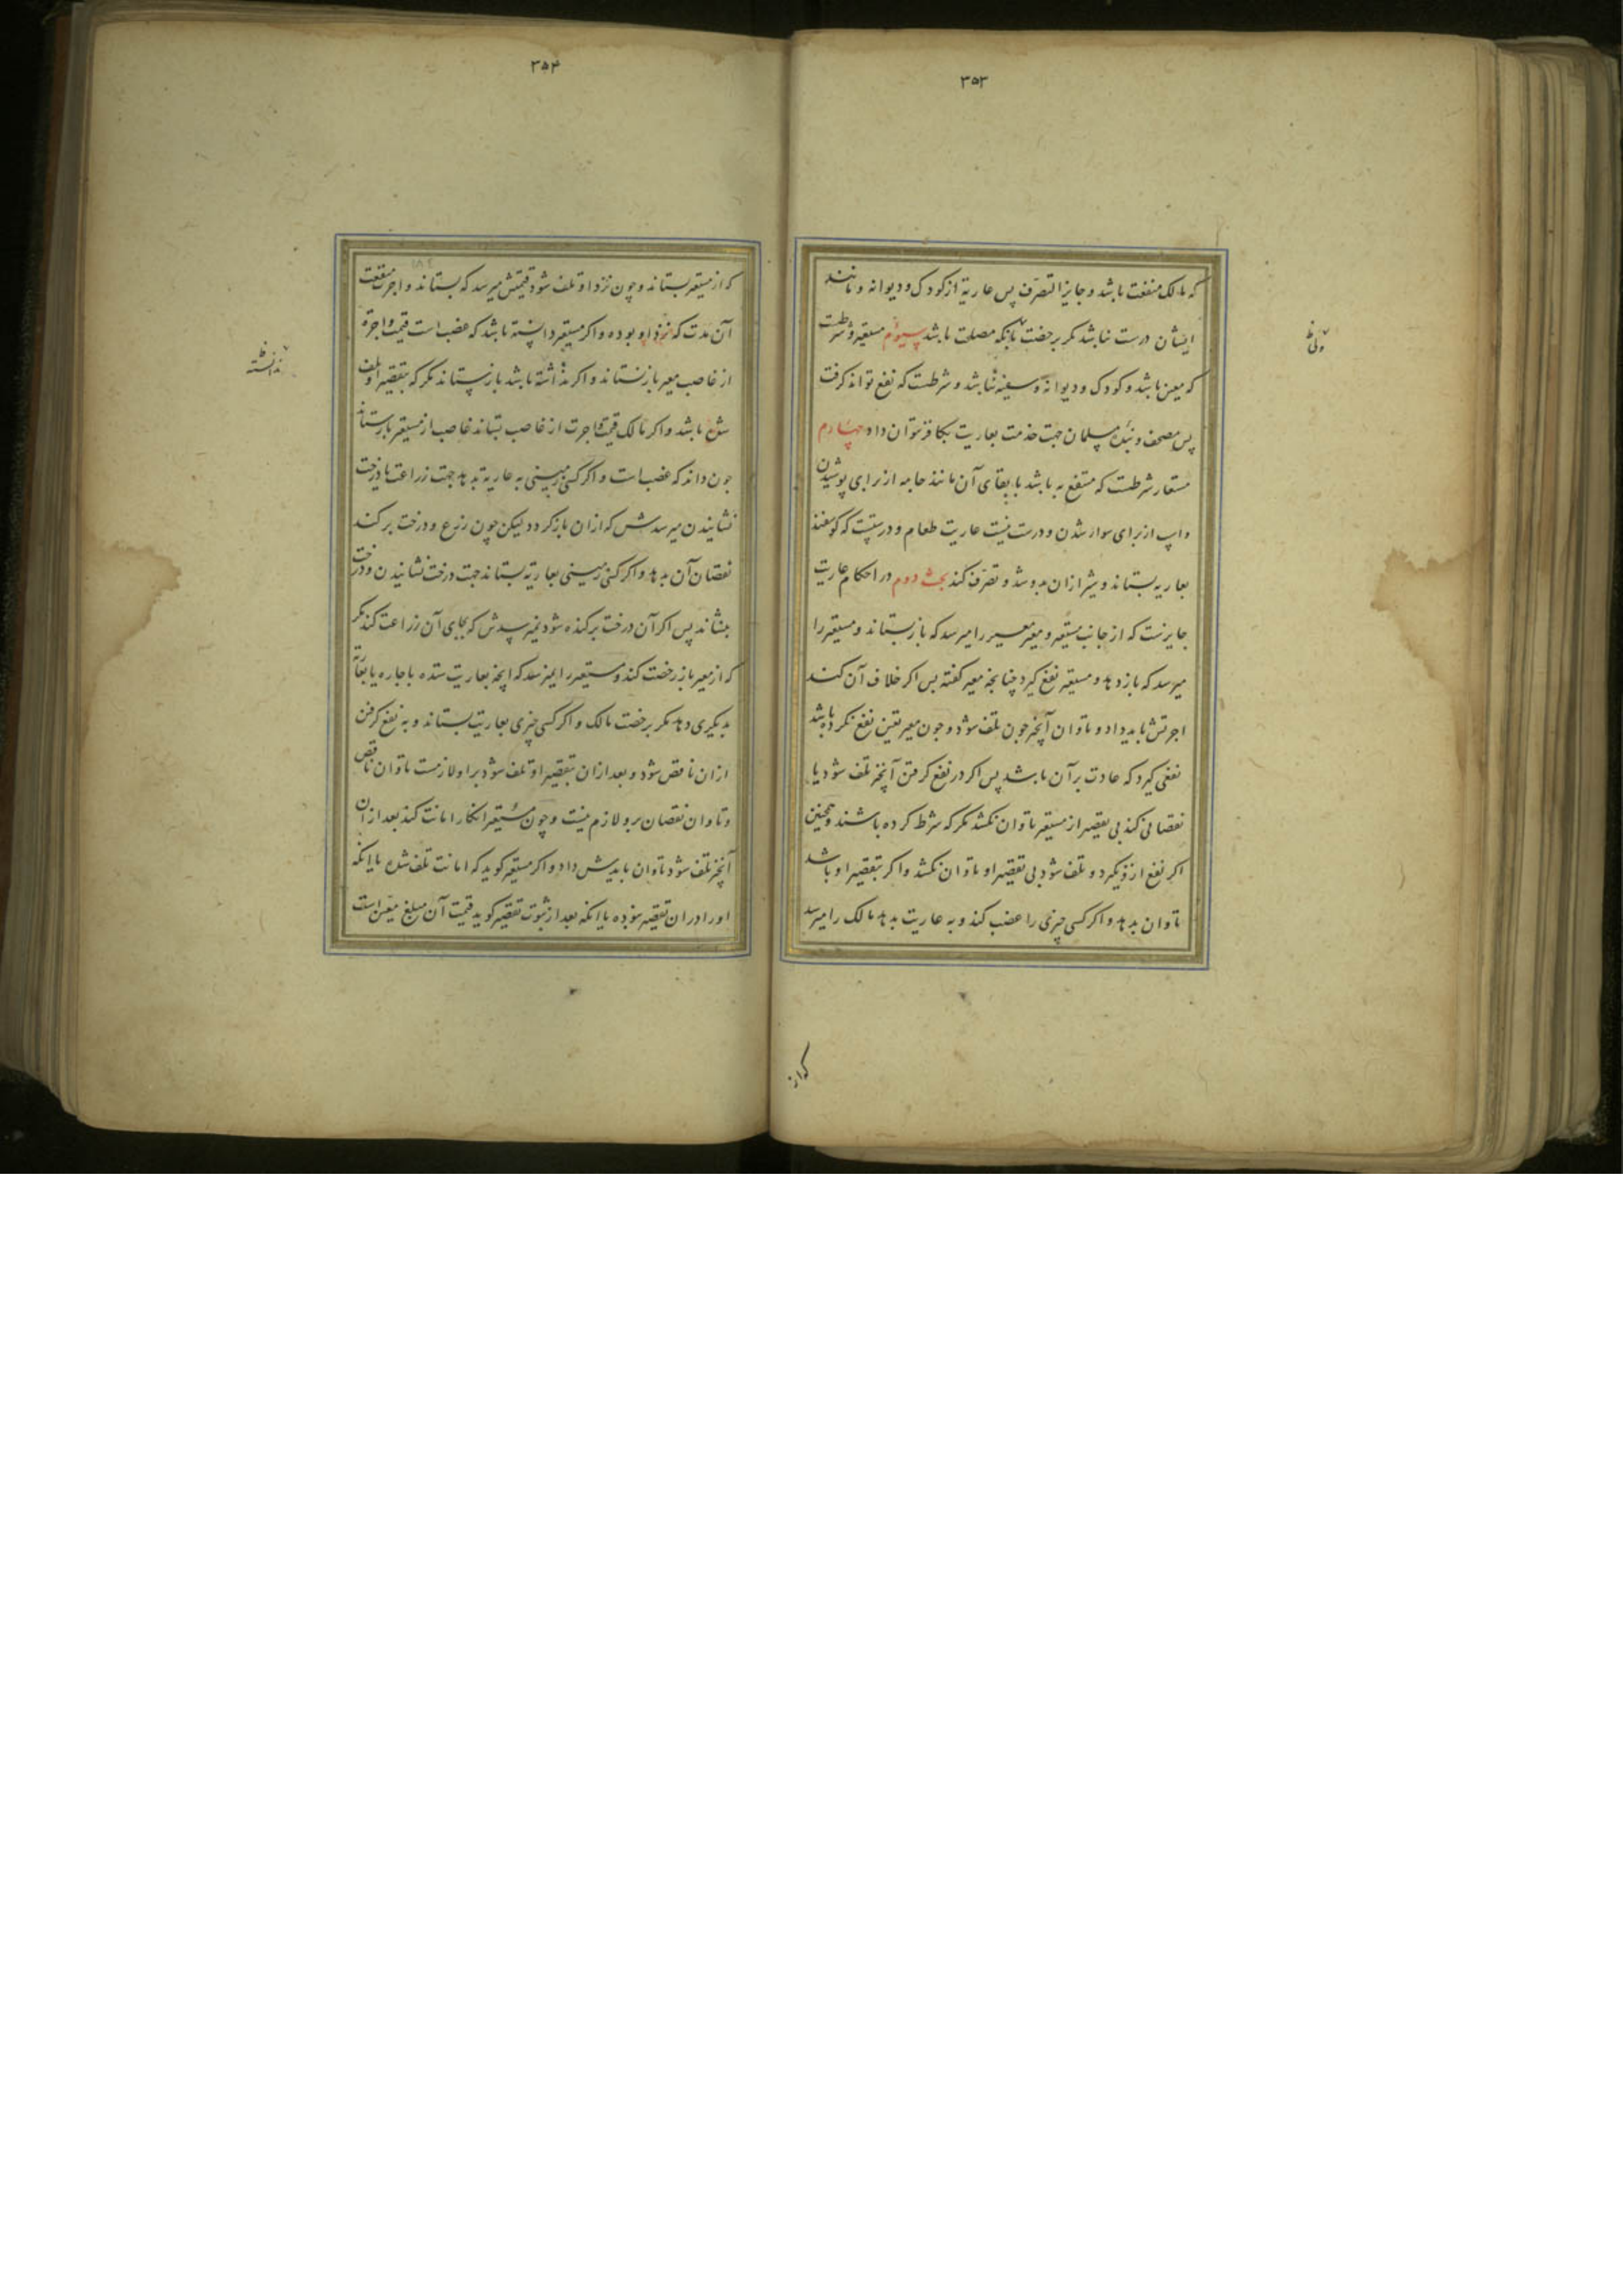 ۳۵۳
که مالک منفعت باشد و جایز التصرف پس عاریة از کودک و دیوانه و مانند
ایشان درست نباشد مکر برخصت بانکه مصلحت باشد سیوم مستعیر و شرطست
که معین باشد و کودک و دیوانه و سفیه نباشد و شرطست که نفع تواند کرفت
پس مصحف و بندۀ مسلمان جهت خدمت بعاریت بکافر نتوان داد چهارم
مستعار شرطست که منتفع به باشد با بقای آن مانند جامه از برای پوشیدن
و اسپ از برای سوار شدن و درست نیست عاریت طعام و درستست که کوسفند
بعاریه بستاند و شیر ازان بدوشد و تصرف کند بحث دوم در احکام عاریت
جایزست که از جانب مستعیر و معیر معیر را میرسد که باز ستاند و مستعیر را
میرسد که باز دهد و مستعیر نفع کیرد چنانچه معیر کفته پس اکر خلاف آن کند
اجرتش باید داد و تاوان آنچه چون تلف شود و چون معیر تعین نفع نکرده باشد
نفعی کیرد که عادت بر آن باشد پس اکر در نفع کرفتن آنچیز تلف شود یا
نقصانی کند بی تقصیر از مستعیر تاوان نکشد مکر که شرط کرده باشند و همچنین
اکر نفع ازو نکیرد و تلف شود بی تقصیر او تاوان نکشد و اکر بتقصیر او باشد
تاوان بدهد و اکر کسی چیزی را غصب کند و به عاریت بدهد مالک را میرسد
که از
۳۵۴
که از مستعیر بستاند و چون نزد او تلف شود قیمتش میرسد که بستاند و اجرت منفعت
آن مدت که نزد او بوده و اکر مستعیر دانسته باشد که غصب است قیمت و اجرة
از غاصب معیر باز نستاند و اکر ندانسته باشد باز ستاند مکر که بتقصیر او تلف
شده باشد و اکر مالک قیمت و اجرت از غاصب بستاند غاصب از مستعیر باز ستاند
چون داند که غصب است و اکر کسی زمینی به عاریة بدهد جهت زراعت یا درخت
نشانیدن میرسدش که ازان باز کردد لیکن چون زرع و درخت بر کند
نقصان آن بدهد و اکر کسی زمینی بعاریة بستاند جهت درخت نشانیدن و درخت
بنشاند پس اکر آن درخت برکنده شود نمیرسدش که بجای آن زراعت کند مکر
که از معیر باز رخصت کند و مستعیر را نمیرسد که آنچه بعاریت ستده باجاره یا بعاریة
بدیکری دهد مکر برخصت مالک و اکر کسی چیزی بعاریت بستاند و به نفع کرفتن
ازان ناقص شود و بعد ازان بتقصیر او تلف شود برو لازمست تاوان ناقص
و تاوان نقصان برو لازم نیست و چون مستعیر انکار امانت کند بعد از آن
آنچیز تلف شود تاوان بایدش داد و اکر مستعیر کوید که امانت تلف شده یا انکه
او را دران تقصیر نبوده یا انکه بعد از ثبوت تقصیر کوید قیمت آن مبلغ معین است